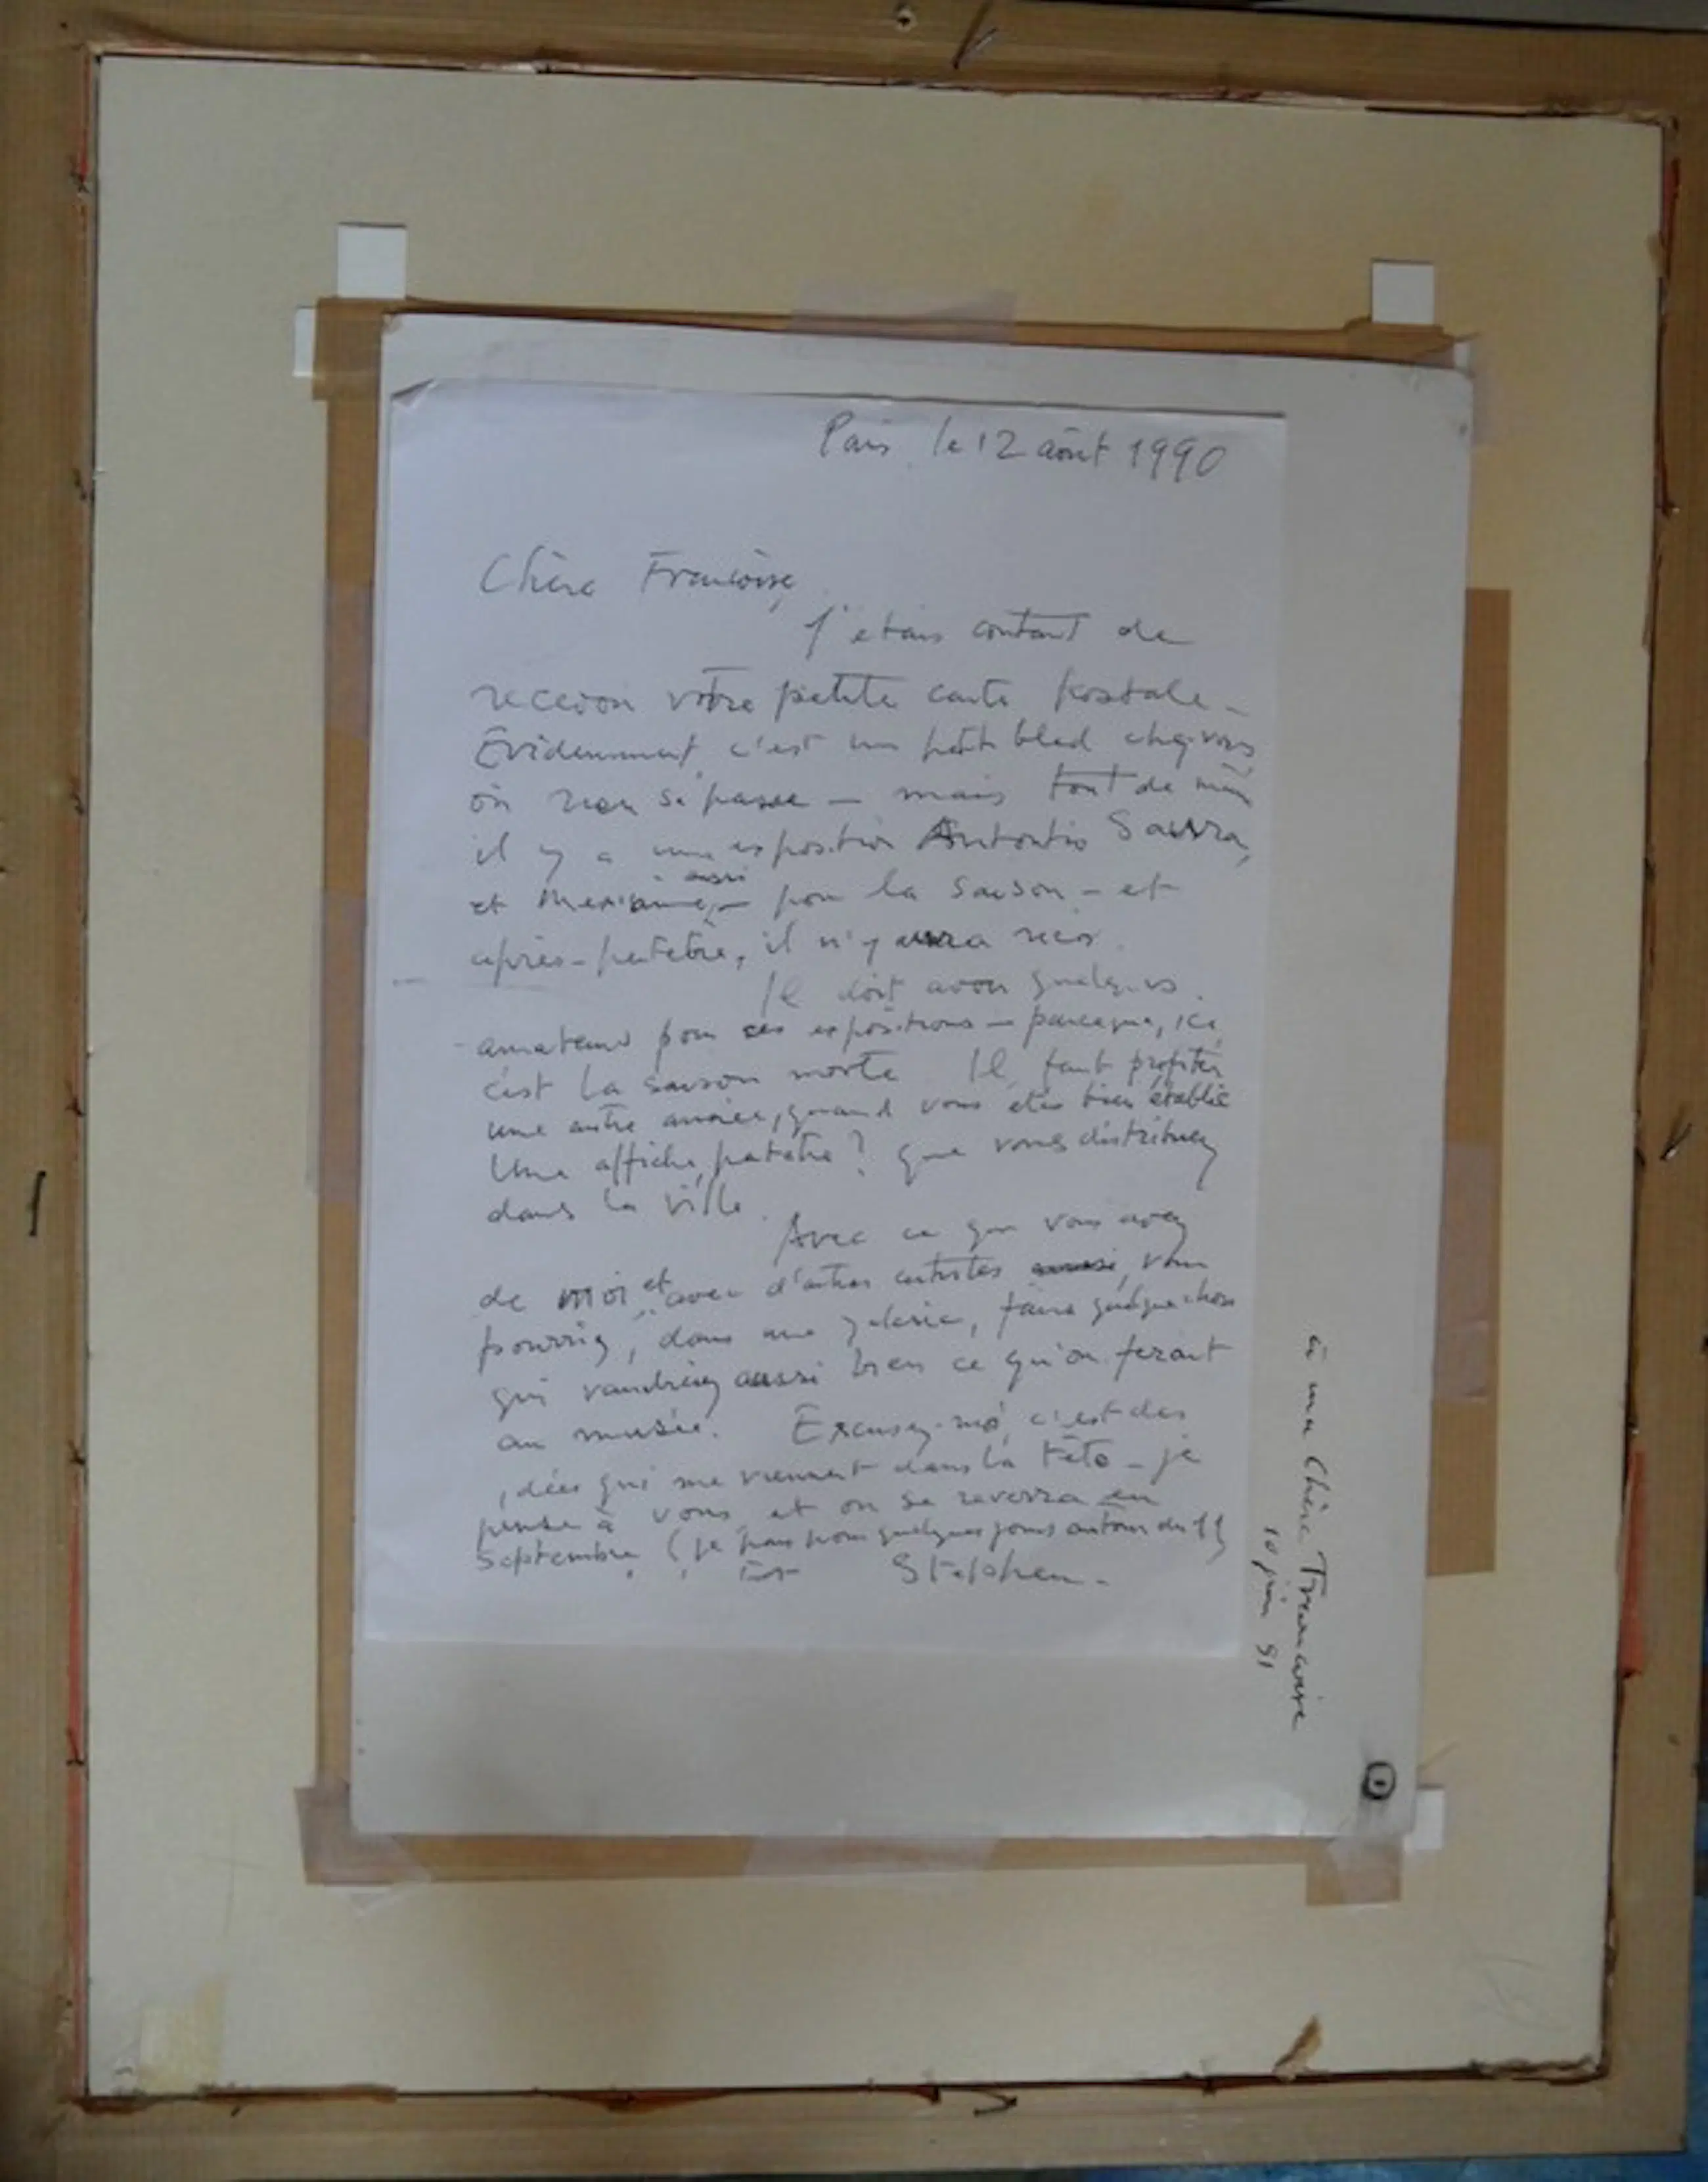 Paris le 12 août 1990
Chère Francoise,
J'etais contant de
recevoir vôtre petite carte postale -
Évidemment, c'est un petit bled chez vous
où rien se passe - mais tout de
il y a une exposition Antontio Saura,
aussi
et pour la saison - et
après - peutetre, il n'y aura rien.
Il doit avoir quelques
amateurs pour ces expositions - parceque, ici,
c'est la saison morte Il faut profiter
une autre année, quand vous etes bien établie
Une affiche, peutetre? que vous distribuez
dans la ville.
Avec ce que vous avez
de moi et avec d'autres artistes aussi, vous
pourriez, dans une galerie, faire quelque chose
qui vaudriez aussi bien ce qu'on ferait
au musée. Excusez-moi, c'est des
idées qui me viennent dans la tête - je
pense à vous, et on se reverra en
Septembre (je pars pour quelques jours autour du
Stephen -
à ma Chère Francoise
10 juin 91